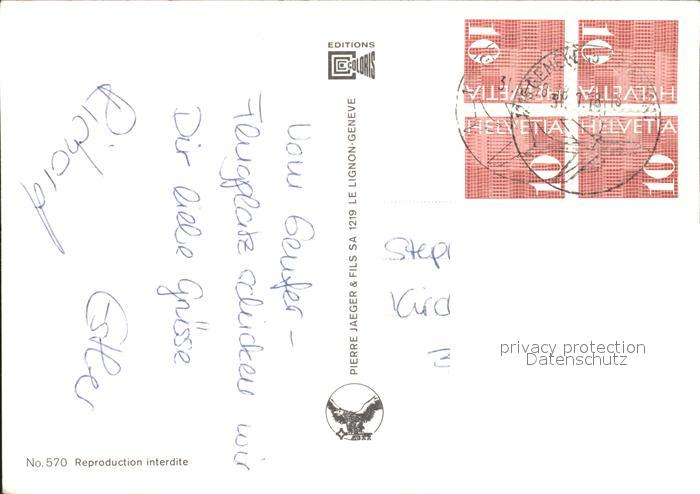 EDITIONS
COLORIS
Vom Genfer-
Flugplatz schicken wir
Dir liebe Grüsse
Richard
Esther
PIERRE JAEGER & FILS SA 1219 LE LIGNON-GENEVE
No.570 Reproduction interdite
10
10
HELVETIA
HELVETIA
HELVETIA
HELVETIA
10
10
Step
Kird
privacy protection
Datenschutz